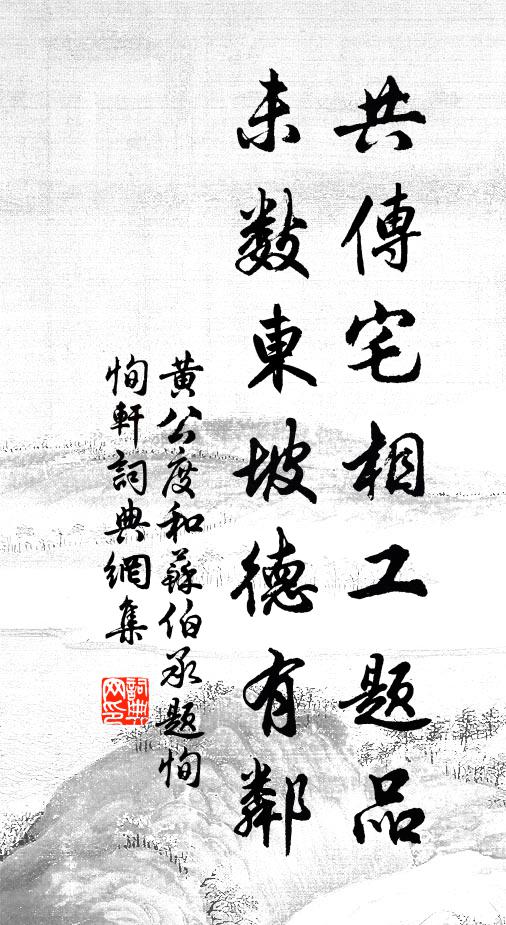 共傳宅相工題品
未數東坡德有鄰
黃公度和蘇伯承題恂
恂軒詞典網集
詞典網印